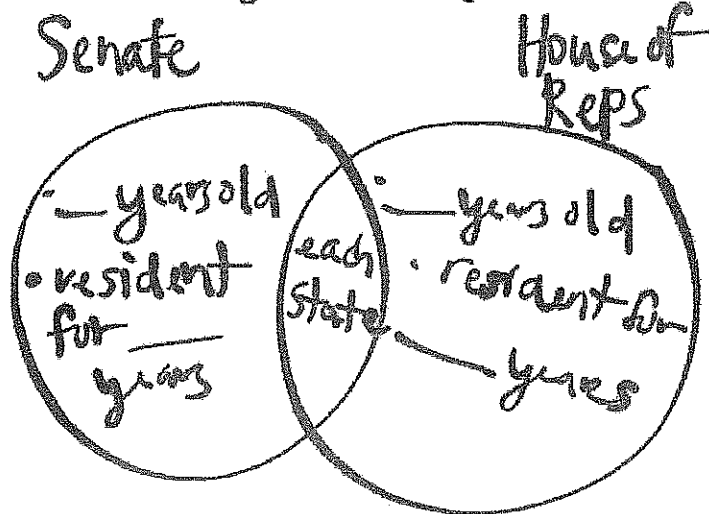 Senate
House of
Reps
• ___ years old
• resident
for ___
years
each
state
• ___ years old
• resident for
___ years